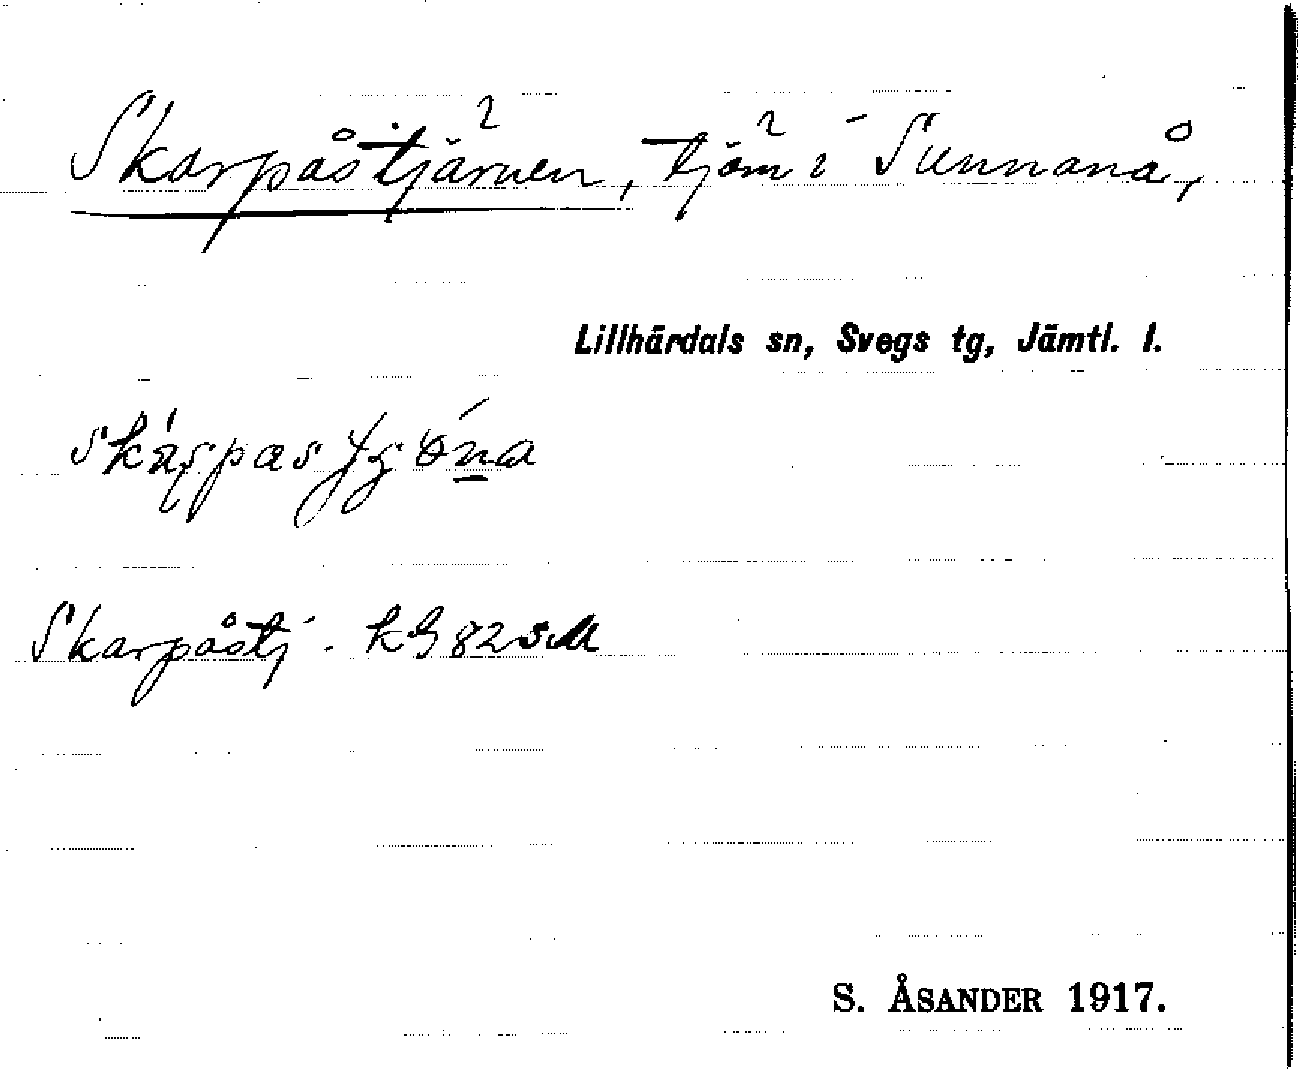 Skarpåstjärnen, tjärn i Sunnanå,
Lillhärdals sn, Svegs tg, Jämtl. l.
Skarpåstj. KB 82 SM
S. ÅSANDER 1917.